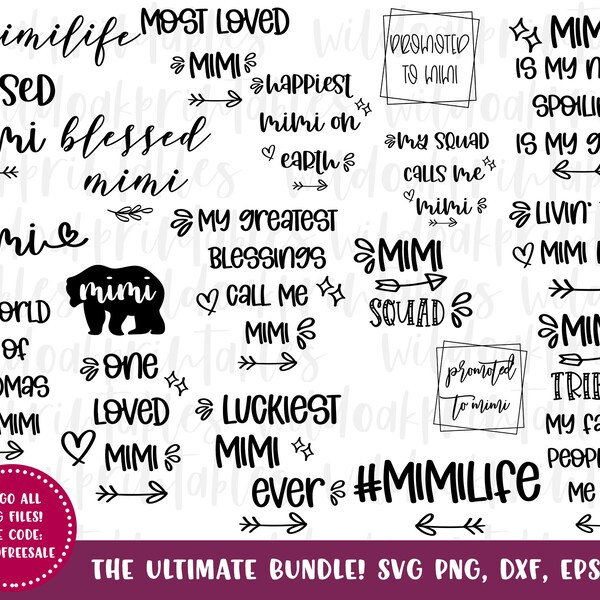 mimilife
MOST LOVED
MIMI
PROMOTED
TO MIMI
MIMI
IS MY N
SPOILIN
IS MY G
SED
mi
blessed
mimi
happiest
mimi on
earth
my squad
calls me
mimi
mi
MY greatest
BLESSINGS
CALL ME
MIMI
MIMI
SQUAD
LIVIN'
MIMI
mimi
ORLD
OF
MAS
MIMI
ONE
LOVED
MIMI
LUCKIEST
MIMI
ever
promoted
to mimi
MIMI
TRIB
MY FA
PEOPL
ME
#MIMILIFE
GO ALL
G FILES!
E CODE:
FREESALE
THE ULTIMATE BUNDLE! SVG PNG, DXF, EPS
wildoakprintables